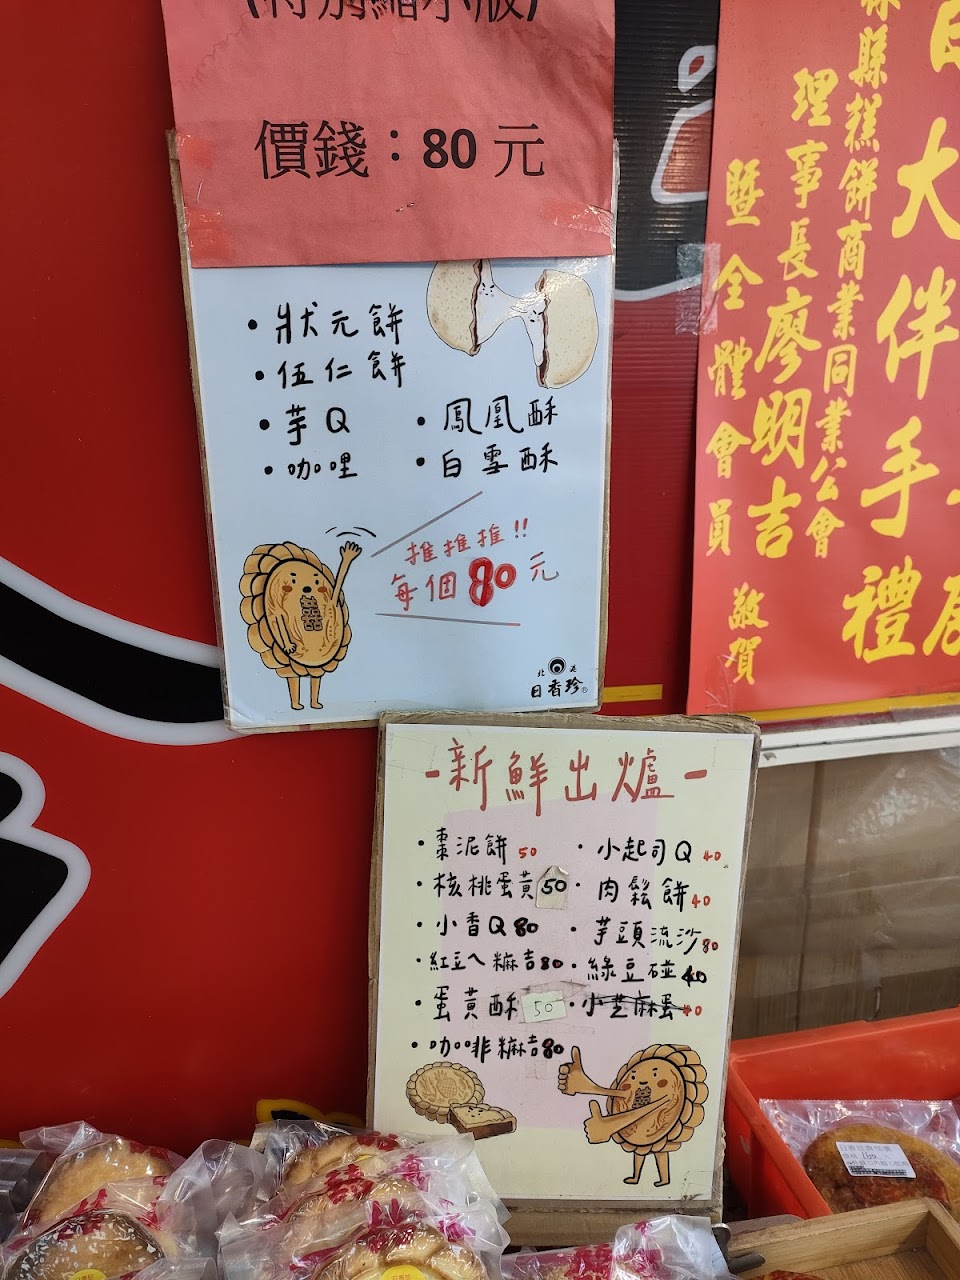 (特別縮小版)
價錢：80 元
• 狀元餅
• 伍仁餅
• 芋Q
• 咖哩
• 鳳凰酥
• 白雪酥
推推推!!
每個80元
北港
日香珍®
縣糕餅商業同業公會
理事長廖明吉
暨全體會員 敬賀
大伴手禮
-新鮮出爐-
• 棗泥餅 50
• 核桃蛋黃 50
• 小香Q 80
• 紅豆ㄟ麻吉 80
• 蛋黃酥 50
• 咖啡麻吉 80
• 小起司Q 40
• 肉鬆餅 40
• 芋頭流沙 80
• 綠豆碰 40
• 小芝麻蛋 40